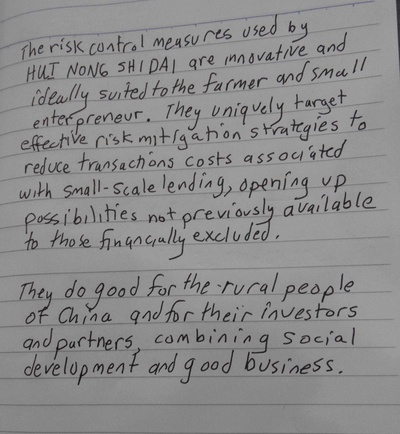 The risk control measures used by
HUI NONG SHI DAI are innovative and
ideally suited to the farmer and small
enterpreneur. They uniquely target
effective risk mitigation strategies to
reduce transactions costs associated
with small-scale lending, opening up
possibilities not previously available
to those financially excluded.
They do good for the rural people
of China and for their investors
and partners, combining social
development and good business.